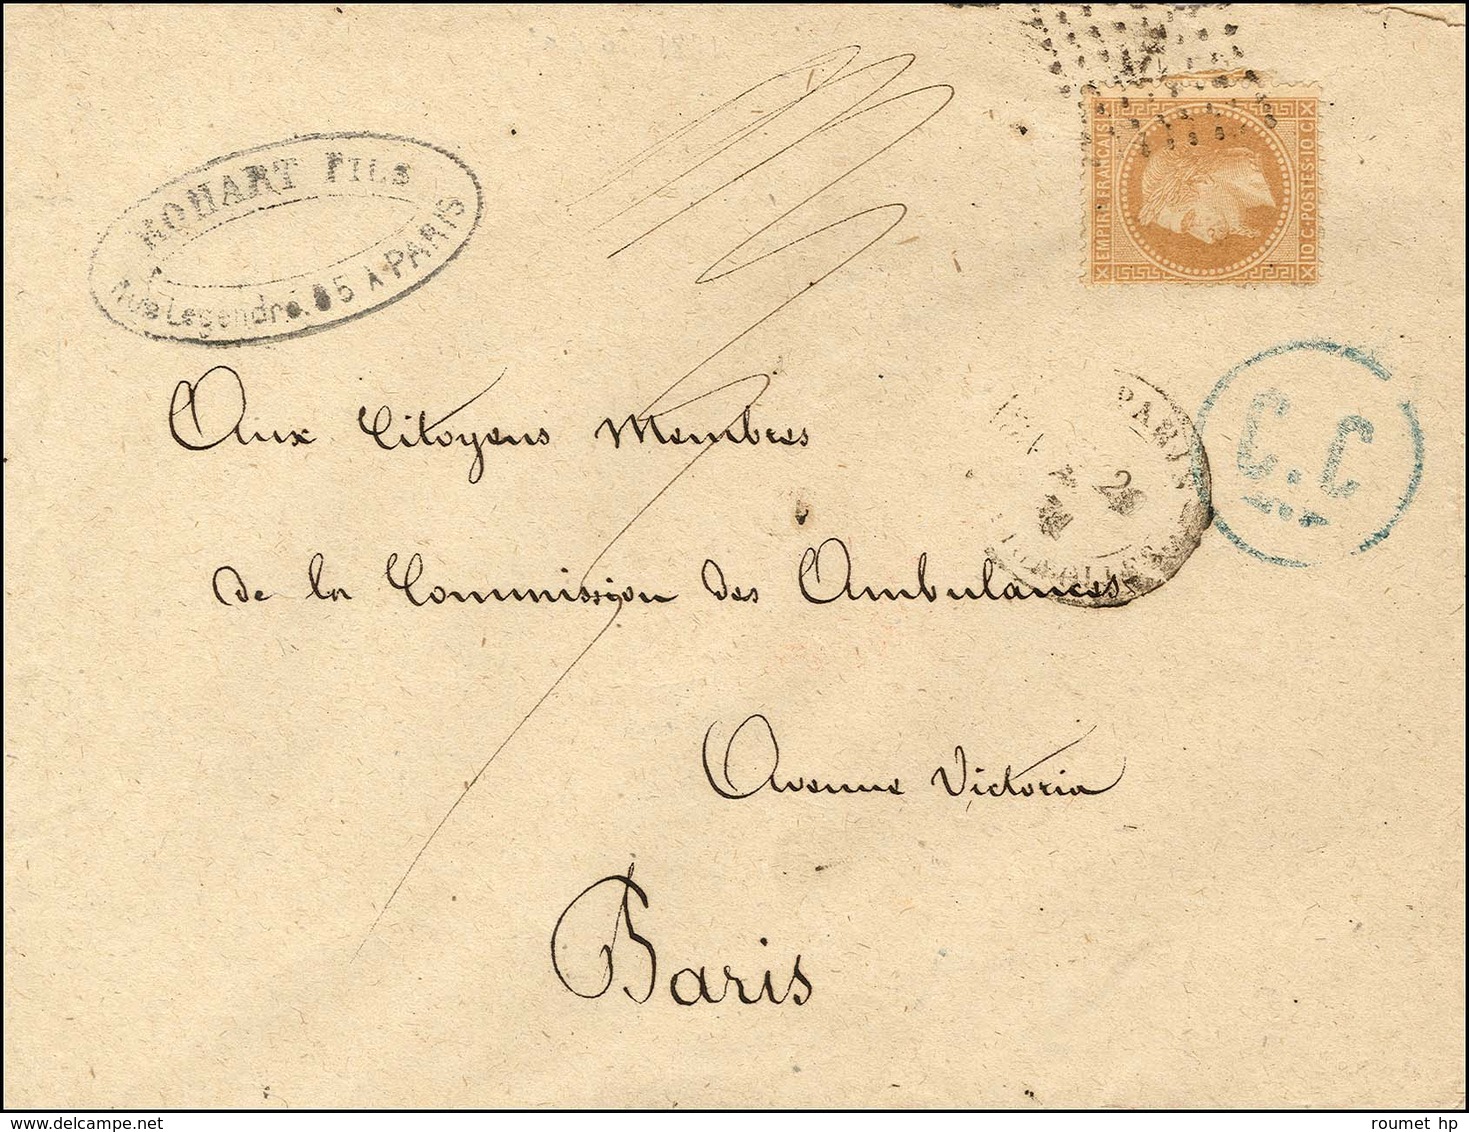 ROHART FILS
Rue Legendre. 85 A PARIS
EMPIRE FRANÇAIS
10 C · POSTES · 10 C
PARIS
2
BATIGNOLLES
C.C
Aux Citoyens Membres
de la Commission des Ambulances
Avenue Victoria
Paris
roumet hp